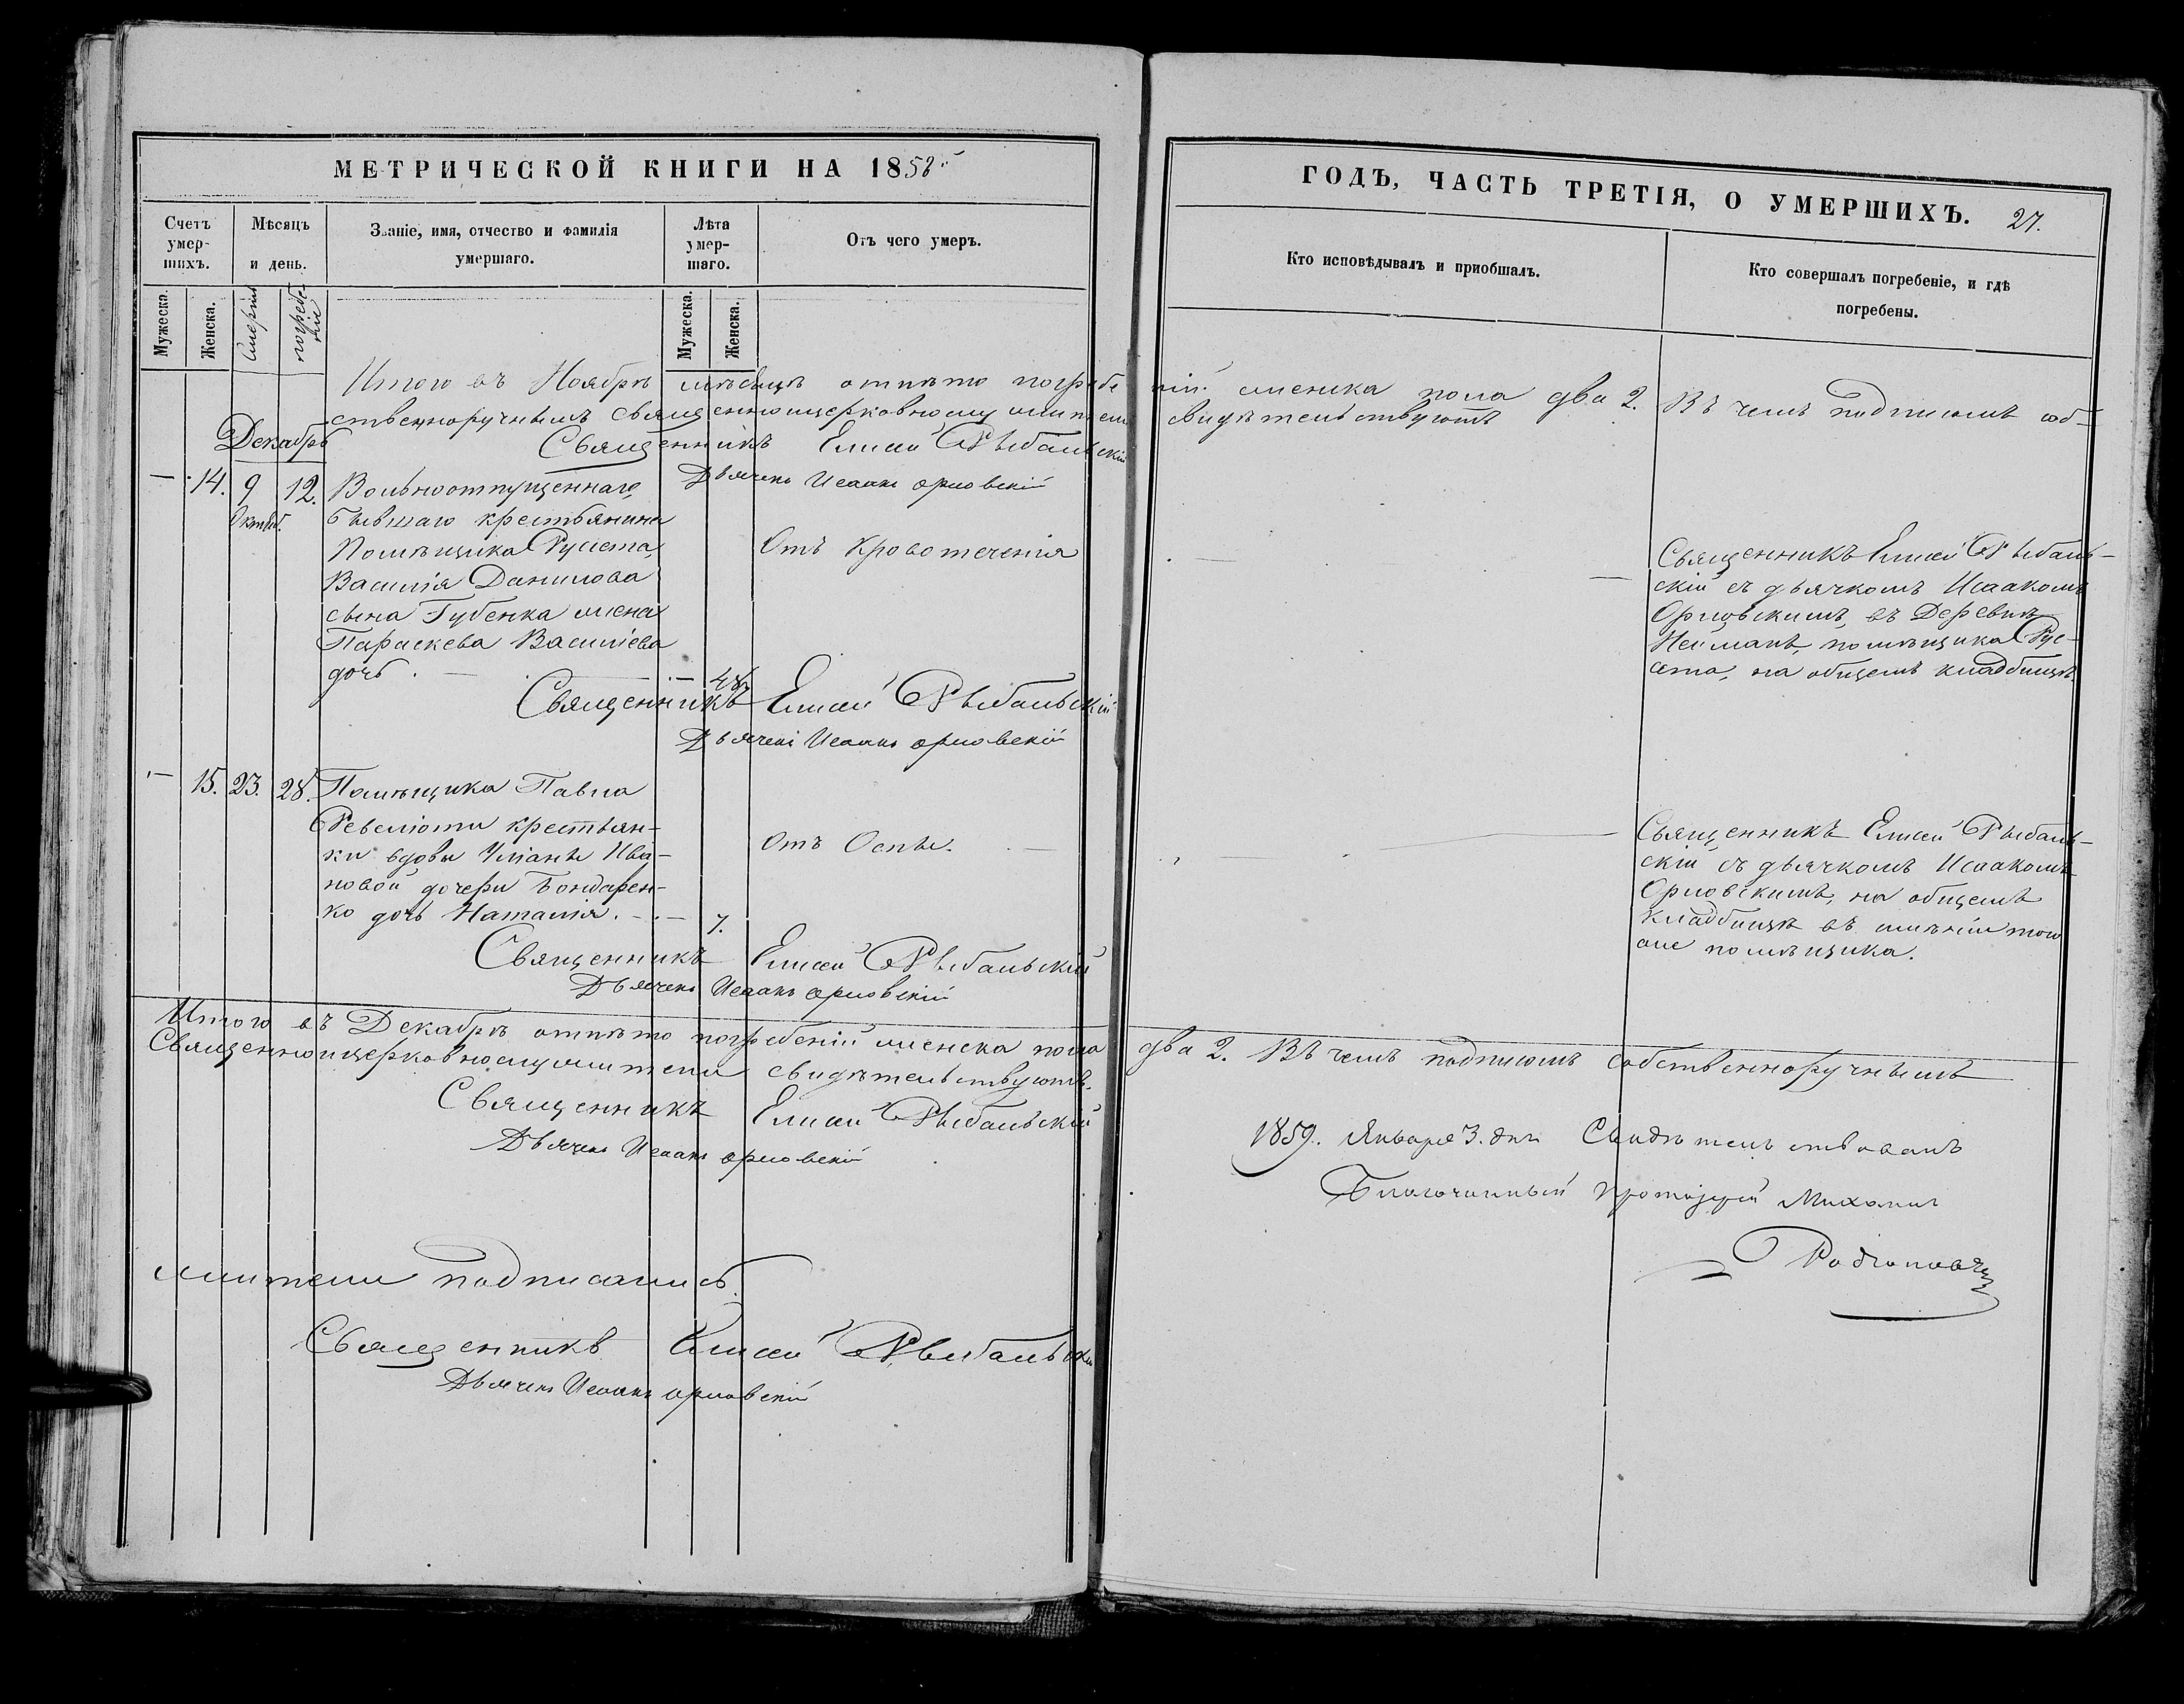 МЕТРИЧЕСКОЙ КНИГИ НА 1858й
Счетъ умер-шихъ.
Мѣсяцъ и день.
Званіе, имя, отчество и фамилія умершаго.
Лѣта умер-шаго.
Отъ чего умеръ.
Мужеска.
Женска.
смерти
погребе-
нія
Мужеска.
Женска.
ГОДЪ, ЧАСТЬ ТРЕТІЯ, О УМЕРШИХЪ. 27.
Кто исповѣдывалъ и пріобшалъ.
Кто совершалъ погребеніе, и гдѣ погребены.
Итого въ Ноябрѣ мѣсяцѣ отпѣто погребеній женска пола два 2. Въ чемъ подписомъ соб-
ственноручнымъ священноцерковнослужители свидѣтельствуютъ
Священникъ Елисей Рыбальскій
Дьячекъ Исаакъ орловскій
Декабрь
— 14. 9 12.
Октяб.
Вольноотпущеннаго,
бывшаго крестьянина
Помѣщика Руссета,
Василія Данилова
сына Губенка жена
Параскева Василіева
дочь. — . — 48
Отъ Кровотеченія
Священникъ Елисей Рыбаль-
скій съ дьячкомъ Исаакомъ
Орловскимъ, въ Деревнѣ
помѣщика Рус-
сета, на общемъ кладбищѣ.
Священникъ Елисей Рыбальскій
Дьячекъ Исаакъ орловскій
— 15. 23. 28.
Помѣщика Павла
Ревеліоти крестьян-
ки вдовы Уліаны Ива-
новой дочери Бондарен-
ко дочь Наталія. — . — 7.
Отъ Оспы. —
Священникъ Елисей Рыбаль-
скій съ дьячкомъ Исаакомъ
Орловскимъ, на общемъ
кладбищѣ въ имѣніи того
же помѣщика.
Священникъ Елисей Рыбальскій
Дьячекъ Исаакъ орловскій
Итого въ Декабрѣ отпѣто погребеній женска пола два 2. Въ чемъ подписомъ собственноручнымъ
Священноцерковнослужители свидѣтельствуютъ.
Священникъ Елисей Рыбальскій
Дьячекъ Исаакъ орловскій
1859. Января 3. дня Свидѣтельствовалъ
Благочинный протоіерей Михаилъ
Родіоновъ
жители подписались.
Священникъ Елисей Рыбальскій
Дьячекъ Исаакъ орловскій